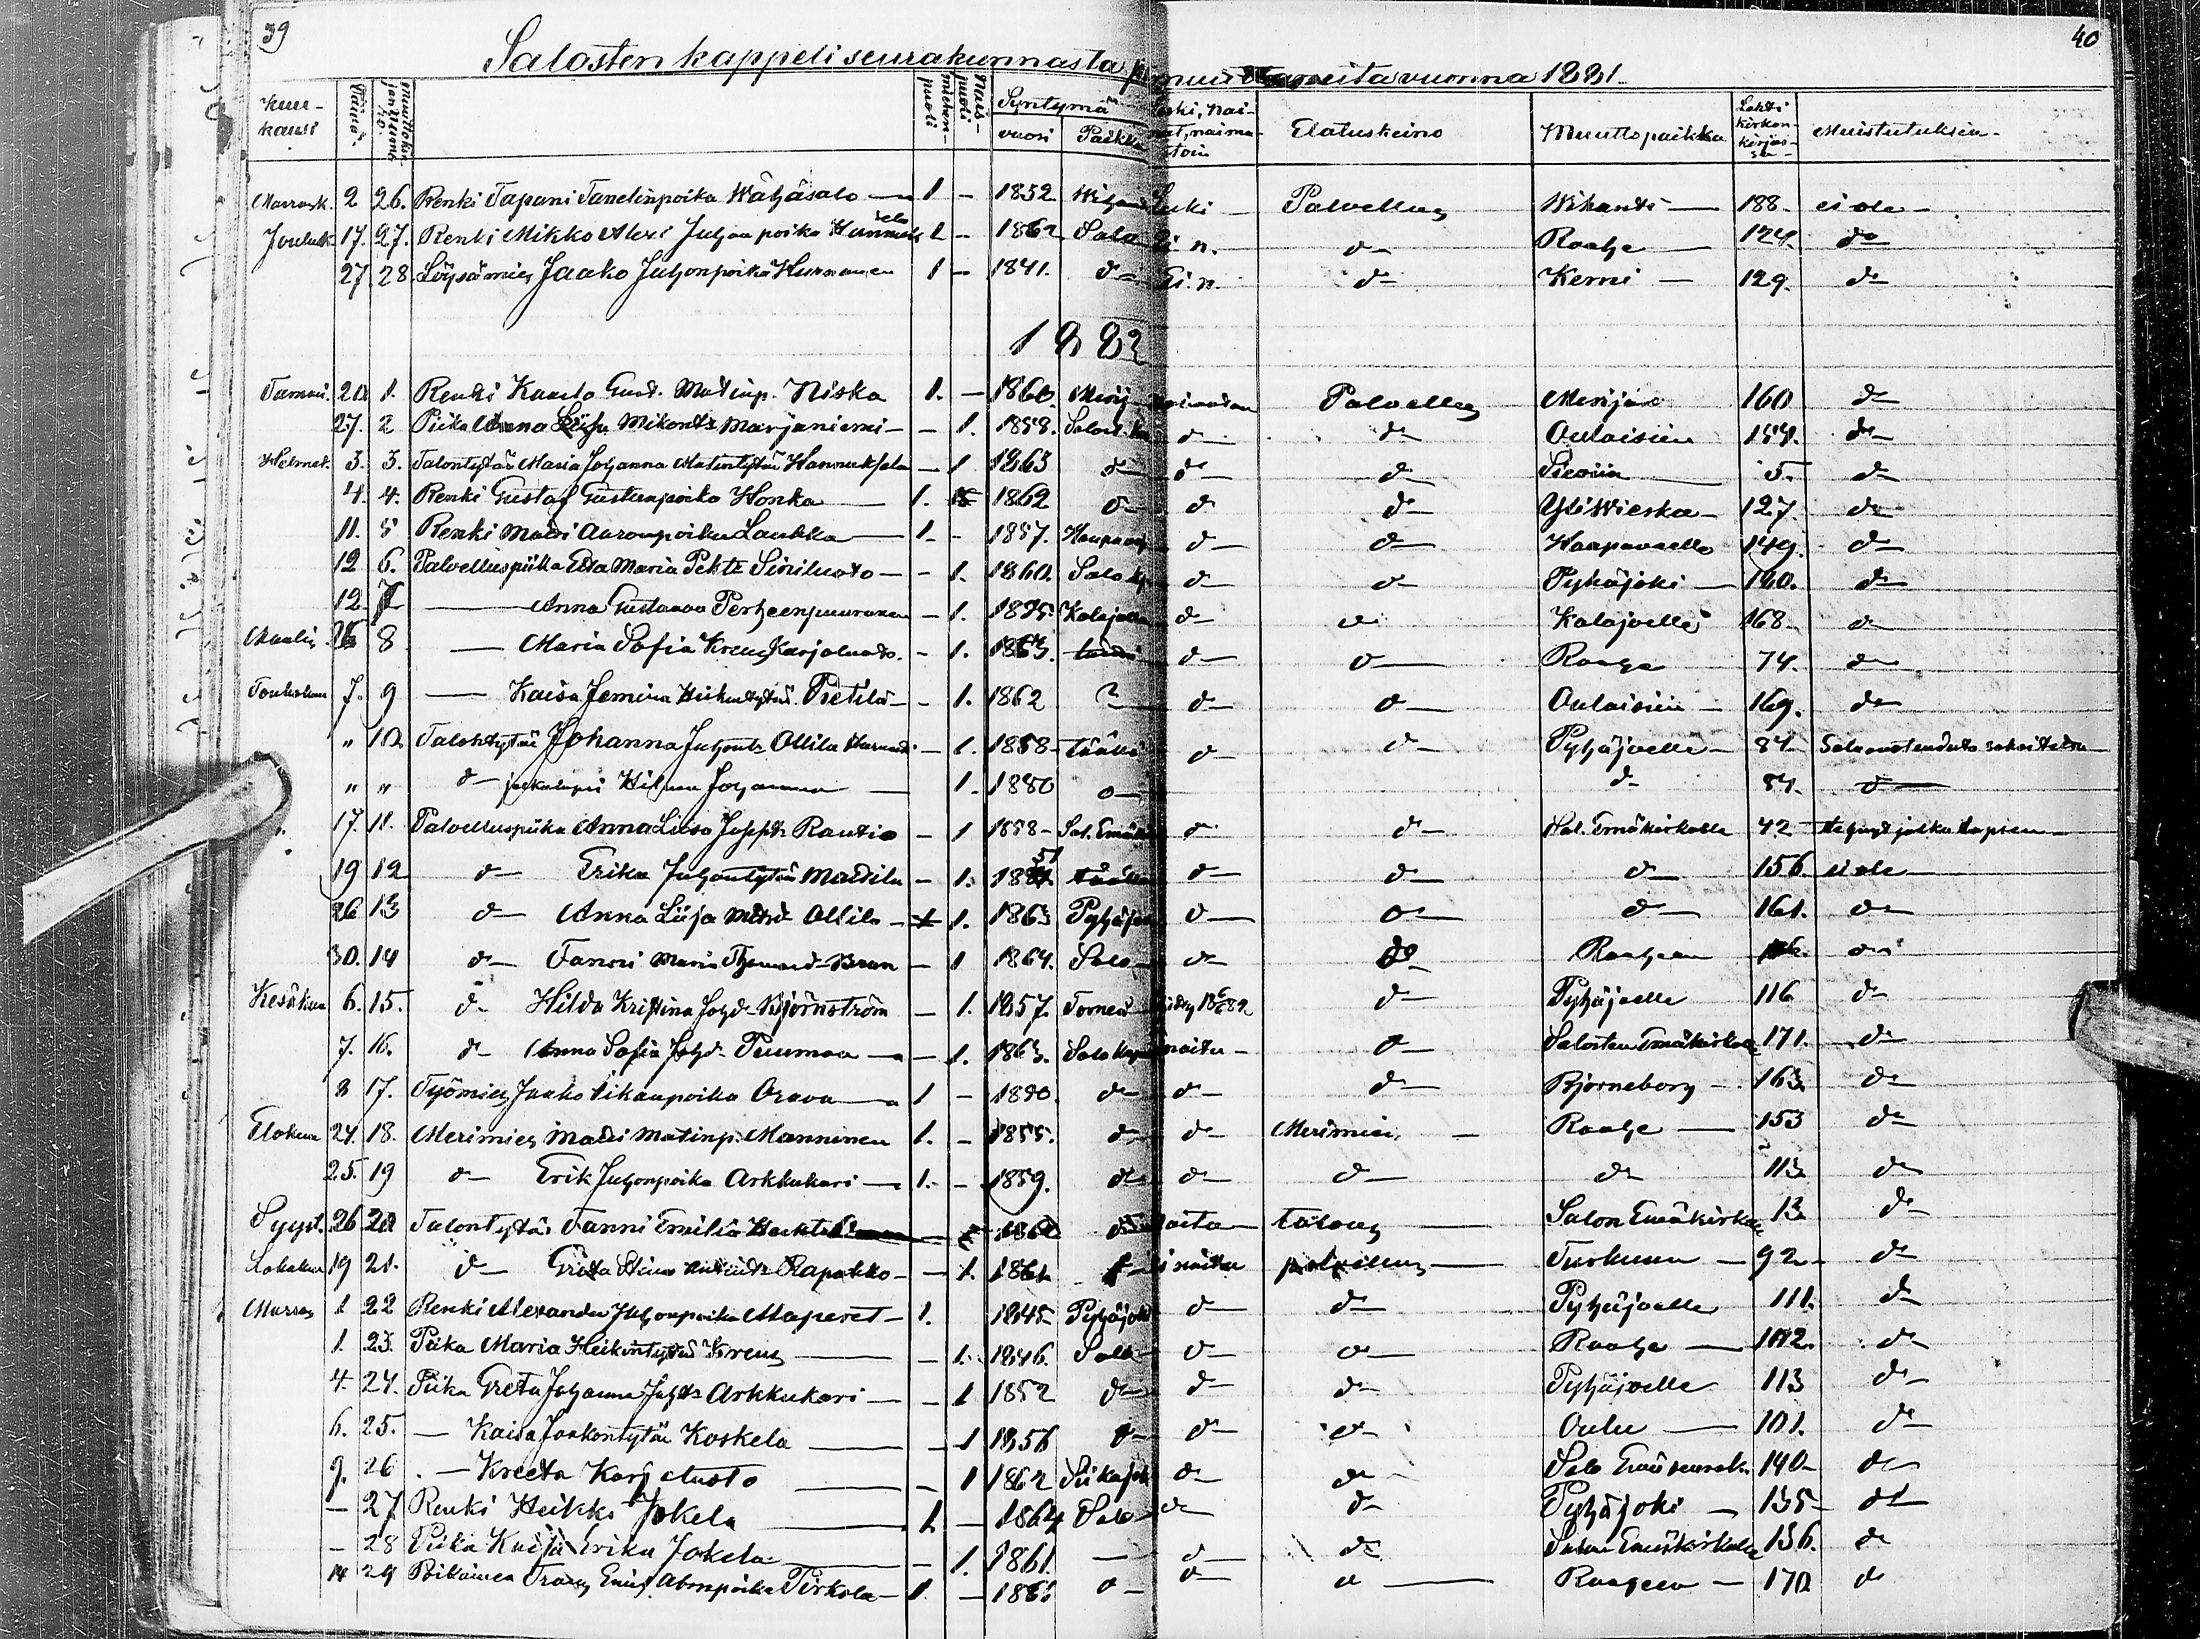 39
40
Salosten kappeli seurakunnasta muuttaneita vuonna 1881.
Kuu-kausi Päivä Muuttokirjan Numero Miehen-puoli Nais-puoli Syntymä vuosi Paikka Leski, nai-nut, naima-toin Elatuskeino Muuttopaikka Lehti kirkon-kirjas-sa Muistutuksia
Marrask. 2 26. Renki Tapani Tanelinpoika Wäljäsalo 1 – 1852 Leski Palvellus Wihanti 188. ei ole
Jouluk. 17. 27. Renki Mikko Alexi Juhonpoika 1 – 1862 Salo Ei n. d– Raahe 124. d–
27. 28. Löysämies Jaako Juhonpoika Hurnanen 1 – 1841. d– Ei n. d– Kemi 129. d–
1882
Tammi. 20. 1. Renki Kaarlo Gust. Matinp. Niska 1. – 1860. Merij Palvellus Merijär 160 d–
27. 2 Piika Anna Liisa Mikonts Marjaniemi – 1. 1858. d– d– Oulaisiin 154. d–
Helmik. 3. 3. Talontytär Maria Johanna Matintytär Hannuksela – 1 1863 d– d– d– 5. d–
4. 4. Renki Gustaf Gustunpoika Honka 1. 1862 d– d d– YliWieska 127. d–
11. 5 Renki Matti Aaronpoika Laukka 1. – 1857. Haapavesi d– d– Haapavedelle 149. d–
12 6. Palvelluspiika Elsa Maria Pekts Siniluoto – 1. 1860. Salo kp d– d Pyhäjoki 120. d–
12 7 — Anna Gustaava Perheenpuuronen – 1. 1825. Kalajoella d– d Kalajoelle 168. d–
Maalis. 26 8 — Maria Sofia Kreus Karjaluoto. – 1. 1863. d– d– Raahe 74. d–
Toukokuu 7. 9 — Kaisa Jemina Heikintytär Pietilä – 1. 1862 ? d– d– Oulaisiin 169. d–
" 10. Talontytär Johanna Juhonts Ollila – 1. 1858 täällä d– d– Pyhäjoelle 84.
" " d– Hilma Johanna — 1. 1880 d– d– 84. d–
17. 11. Palvelluspiika Anna Liisa Josepts Rautio – 1 1858 Sal. Emäk d– d– Sal. Emäkirkolle 42
19 12 d– Erika Juhontytär Mattila – 1. 51 täällä d– d– d– 156. ei ole
26 13 d– Anna Liisa Ollila – 1. 1863 Pyhäjoki d– d– d– 161. d–
30. 14 d– Fanni Maria – 1 1864. Salo d– d– Raaheen d–
Kesäkuu 6. 15. d– Hilda Kristina Johd. Björnström – 1. 1857. Torneå d– Pyhäjoelle 116 d–
7. 16. d– Anna Sofia Johd. Puumaa – 1. 1863. Salo kap naitu d– Salosten Emäkirkolle 171. d–
8 17. Työmies Jaako Iikanpoika Orava 1 – d– d– d– Björneborg 163. d–
Elokuu 24. 18. Merimies Matti Matinp. Manninen 1. – 1855. d– d– Merimies Raahe 153 d–
25. 19 d– Erik Juhonpoika Arkkukari 1. – 1859. d– d– d– d– 113 d–
Syysk. 26 20 Talontytär Fanni Emilia d– naitu talous Salon Emäkirkolle 13. d–
Lokakuu 19 21. d– Greta Stina Rapakko – 1. 1861. naitu palvellus Turkuun 92 d–
Marras 1 22 Renki Alexander Juhonpoika Maperet 1. 1845 Pyhäjoki d– d– Pyhäjoelle 111. d–
1. 23. Piika Maria Heikintytär Kreus – 1. 1846. Salo d– d– Raahe 102. d–
4. 24. Piika Greta Johanna Juhts Arkkukari – 1 1852 d– d– d– Pyhäjoelle 113 d–
6. 25. — Kaisa Jaakontytär Koskela – 1 1856 d– d– d– Oulu 101. d–
9. 26 — Kreeta Karjaluoto – 1 1862 Siikajoki d– d– Salo 140 d–
– 27 Renki Heikki Jokela 1. – 1864 Salo d– d– Pyhäjoki 135 d–
– 28 Piika Kaisa Erika Jokela – 1. 1861. — d– d– Salon Emäkirkolle 136. d–
14 29 Poikainen Frans Emil Abmpoika Pirkola 1. – d– d– d– Raaheen 170 d–